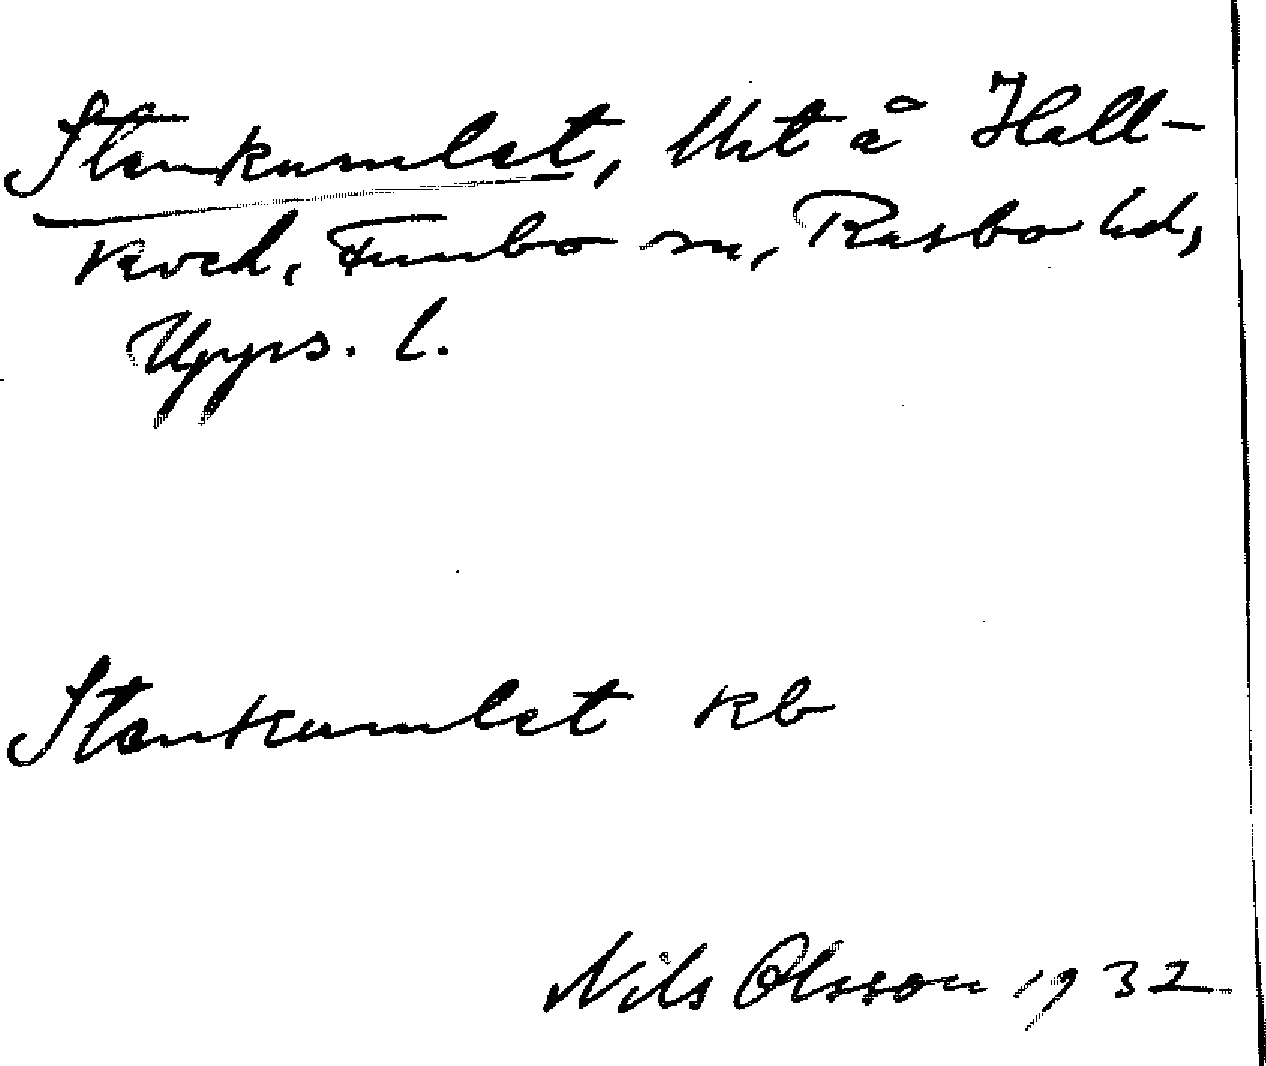 Stenkumlet, Utr å Hall-
kved, Funbo sn, Rasbo hd,
Upps. l.
Stenkumlet kb
Nils Olsson 1932